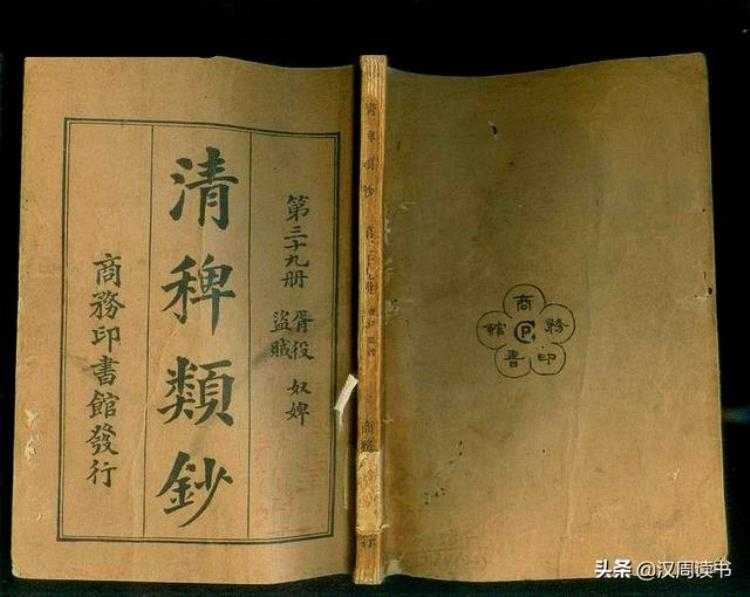 第三十九册
胥役 奴婢
盜賊
清稗類鈔
商務印書館發行
商務印書館
CP
头条 @汉周读书